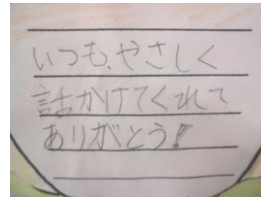 いつも、やさしく
話かけてくれて
ありがとう!